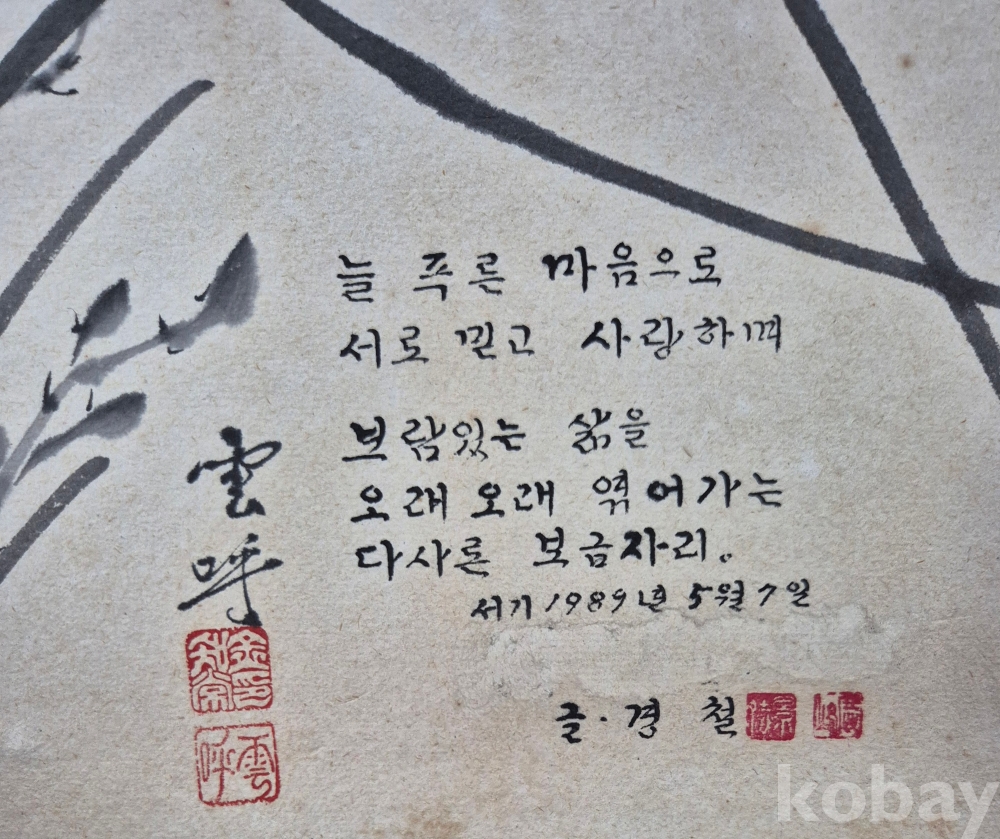 늘 푸른 마음으로
서로 믿고 사랑하며
보람있는 삶을
오래오래 엮어가는
다사론 보금자리。
서기 1989년 5월 7일
글·경 철
雲
呼
金印
知常
雲呼
kobay